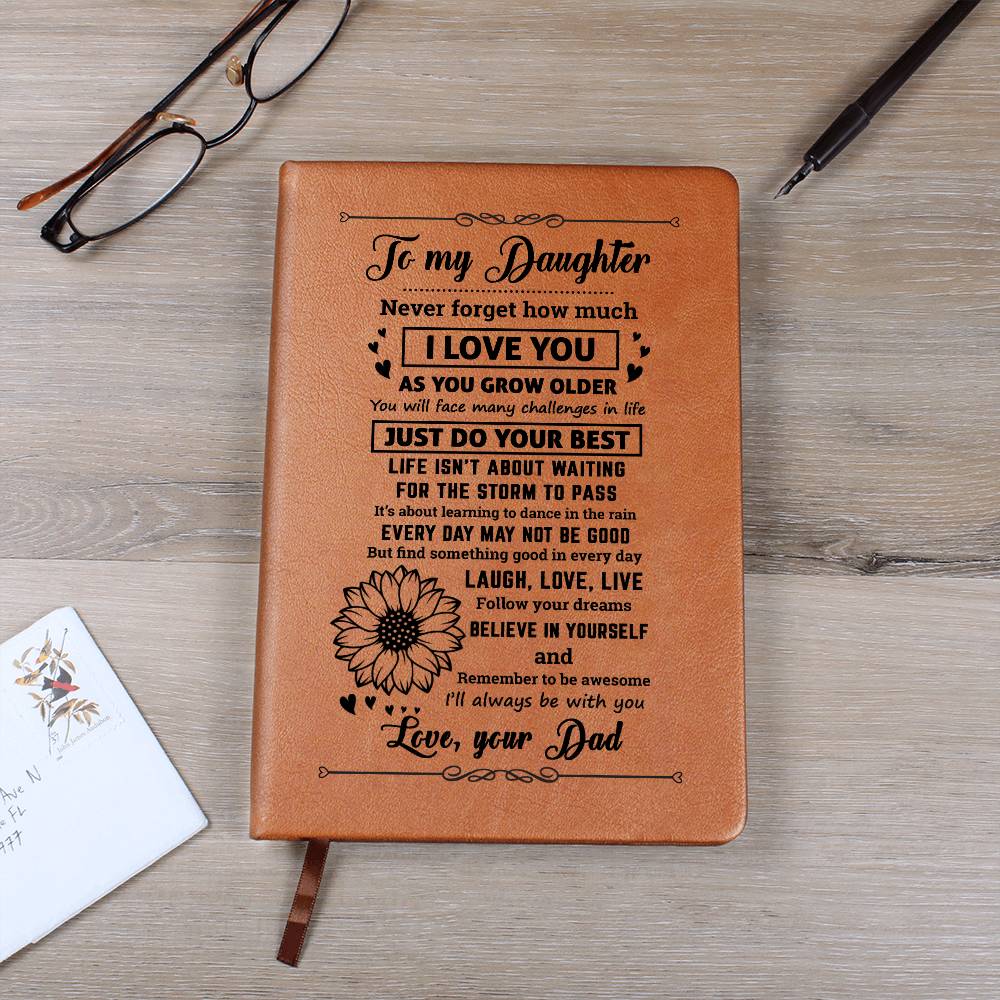 To my Daughter
Never forget how much
I LOVE YOU
AS YOU GROW OLDER
You will face many challenges in life
JUST DO YOUR BEST
LIFE ISN'T ABOUT WAITING
FOR THE STORM TO PASS
It's about learning to dance in the rain
EVERY DAY MAY NOT BE GOOD
But find something good in every day
LAUGH, LOVE, LIVE
Follow your dreams
BELIEVE IN YOURSELF
and
Remember to be awesome
I'll always be with you
Love, your Dad
37
John James Audubon
Ave N
FL
977